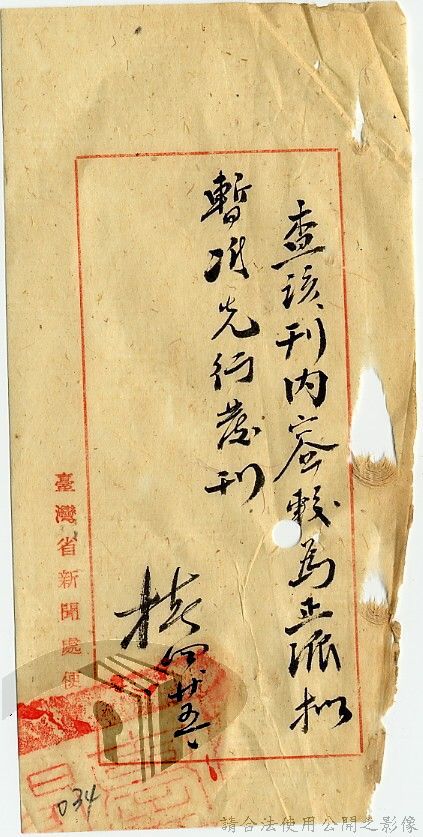 查該刊内容較為正派擬
暫准先行發刊
四廿五、
臺灣省新聞處便
034
請合法使用公開之影像